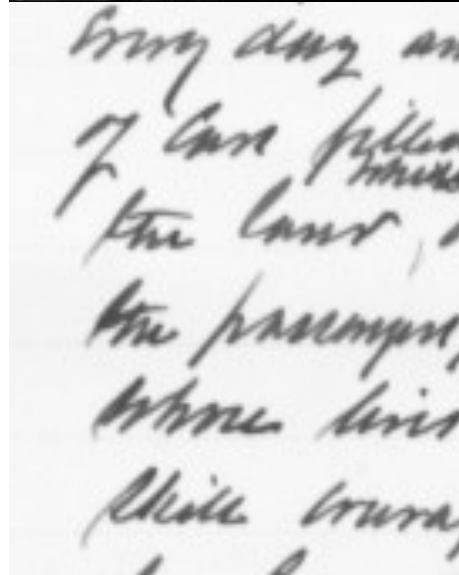 Every day an
of care filled
the land,
the passengers
whose lives
skill coura